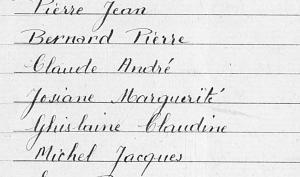 Pierre Jean
Bernard Pierre
Claude André
Josiane Marguerité
Ghislaine Claudine
Michel Jacques